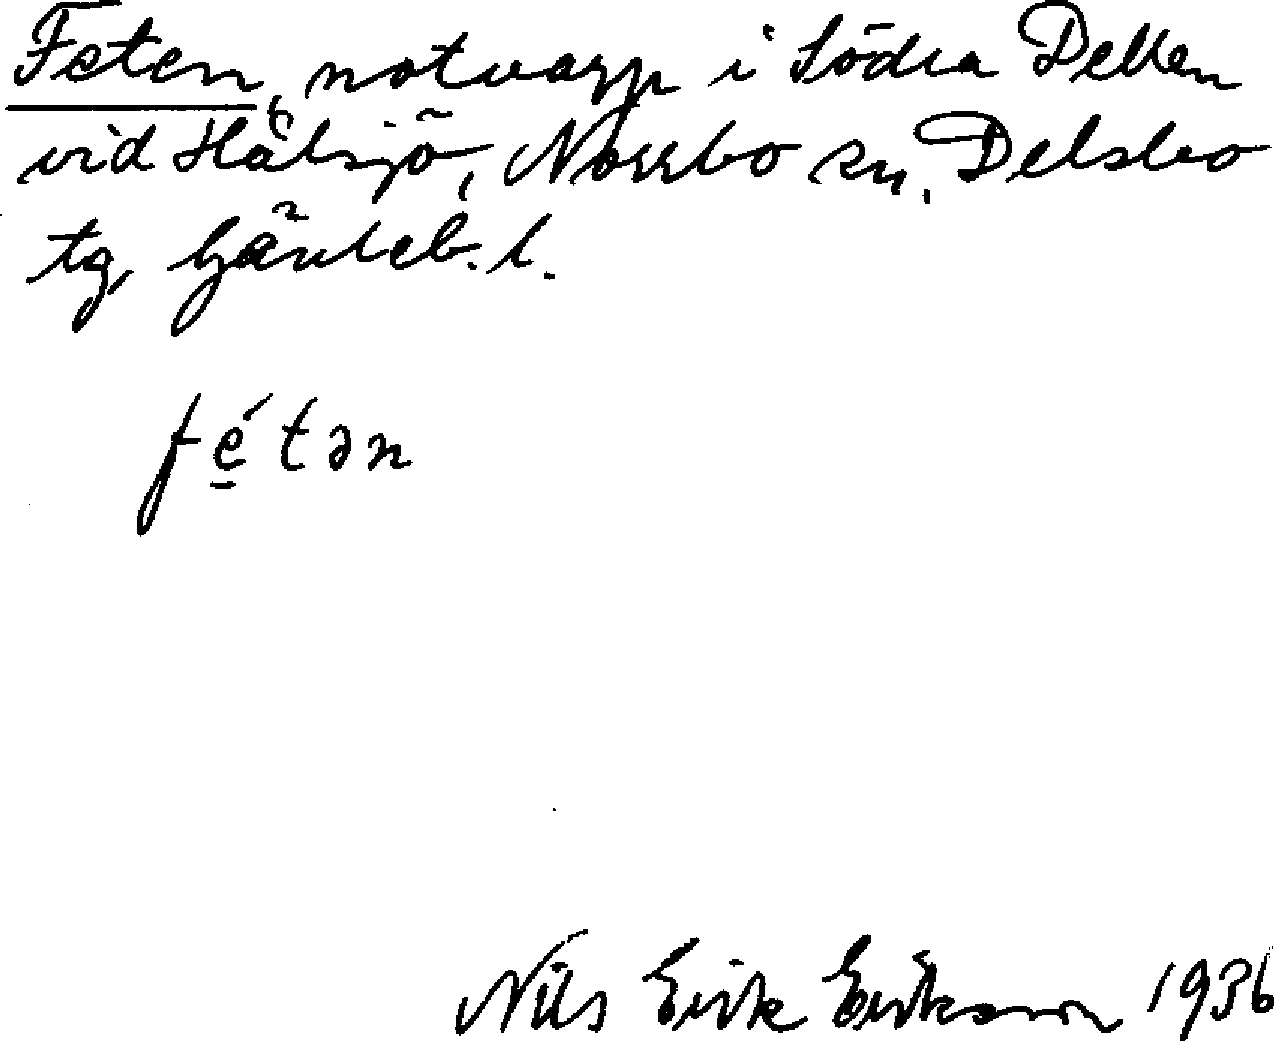 Feten, notvarp i Södra Dellen
vid Hålsjö, Norrbo sn. Delsbo
tg, Gävleb. l.
fe̱´tən
Nils Erik Eriksson 1936